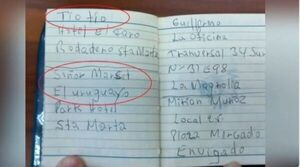 Tio tio
Hotel el Caro
Rodadero Sta Marta
Señor Marset
El uruguayo
Park Hotel
Sta Marta
Guillermo
La Oficina
Tranversal 34 Sur
Nº 31E98
La Magnolia
Mirian Muñoz
Local
Plaza Mercado
Envigado